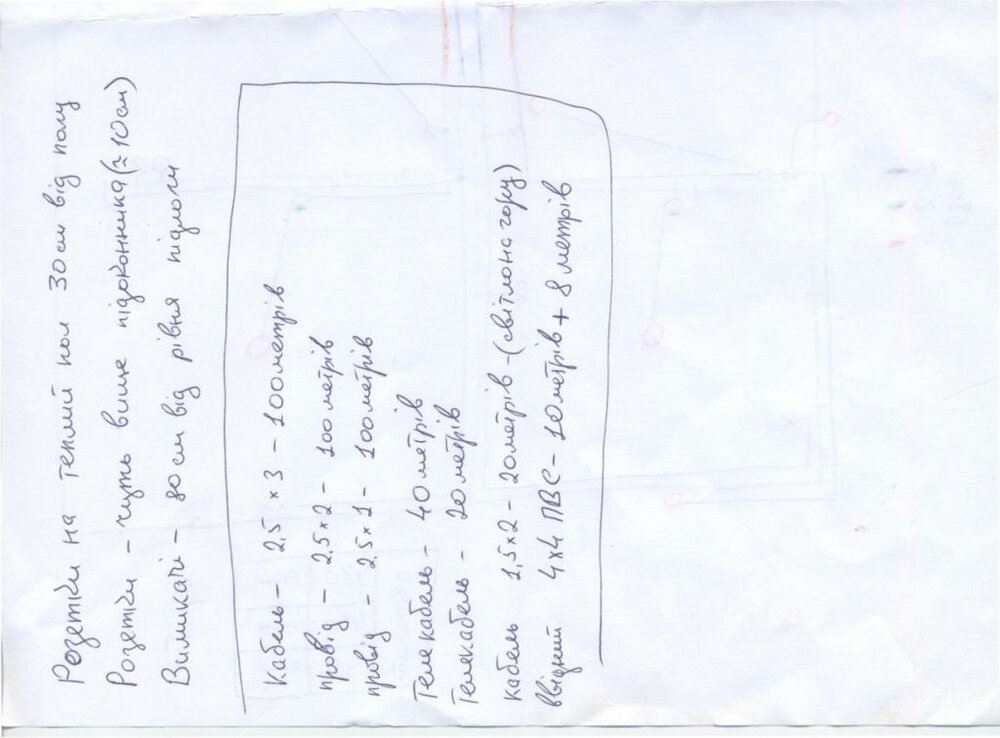 Розетки на теплий пол 30 см від полу
Розетки – чуть вище підоконника (≈ 10 см)
Вимикачі – 80 см від рівня підлоги
Кабель – 2,5 × 3 – 100 метрів
провід – 2,5 × 2 – 100 метрів
провід – 2,5 × 1 – 100 метрів
Телекабель – 40 метрів
Телекабель – 20 метрів
кабель 1,5 × 2 – 20 метрів – (світло на гору)
ввідний 4×4 ПВС – 10 метрів + 8 метрів